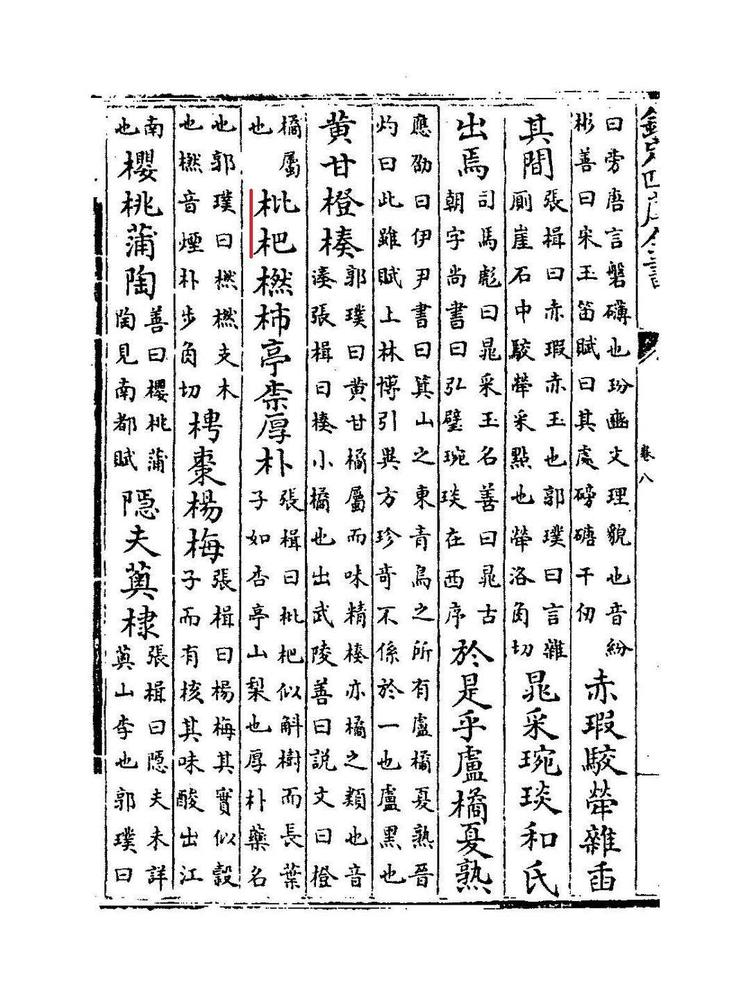 欽定四庫全書 卷八
曰旁唐言磐礴也玢豳文理貌也音紛
彬善曰宋玉笛賦曰其處磅磄千仞
赤瑕駮犖雜臿
其間
張楫曰赤瑕赤玉也郭璞曰言雜
厠崖石中駮犖采點也犖洛角切
晁采琬琰和氏
出焉
司馬彪曰晁采玉名善曰晁古
朝字尚書曰弘璧琬琰在西序
於是乎盧橘夏熟
應劭曰伊尹書曰箕山之東青鳥之所有盧橘夏熟晉
灼曰此雖賦上林博引異方珍竒不係於一也盧黑也
黄甘橙楱
郭璞曰黄甘橘屬而味精楱亦橘之類也音
湊張楫曰楱小橘也出武陵善曰説文曰橙
橘屬
也
枇杷橪柿亭柰厚朴
張楫曰枇杷似斛樹而長葉
子如杏亭山梨也厚朴藥名
也郭璞曰橪橪支木
也橪音煙朴步角切
梬棗楊梅
張楫曰楊梅其實似糓
子而有核其味酸出江
南
也
櫻桃蒲陶
善曰櫻桃蒲
陶見南都賦
隠夫薁棣
張楫曰隠夫未詳
薁山李也郭璞曰